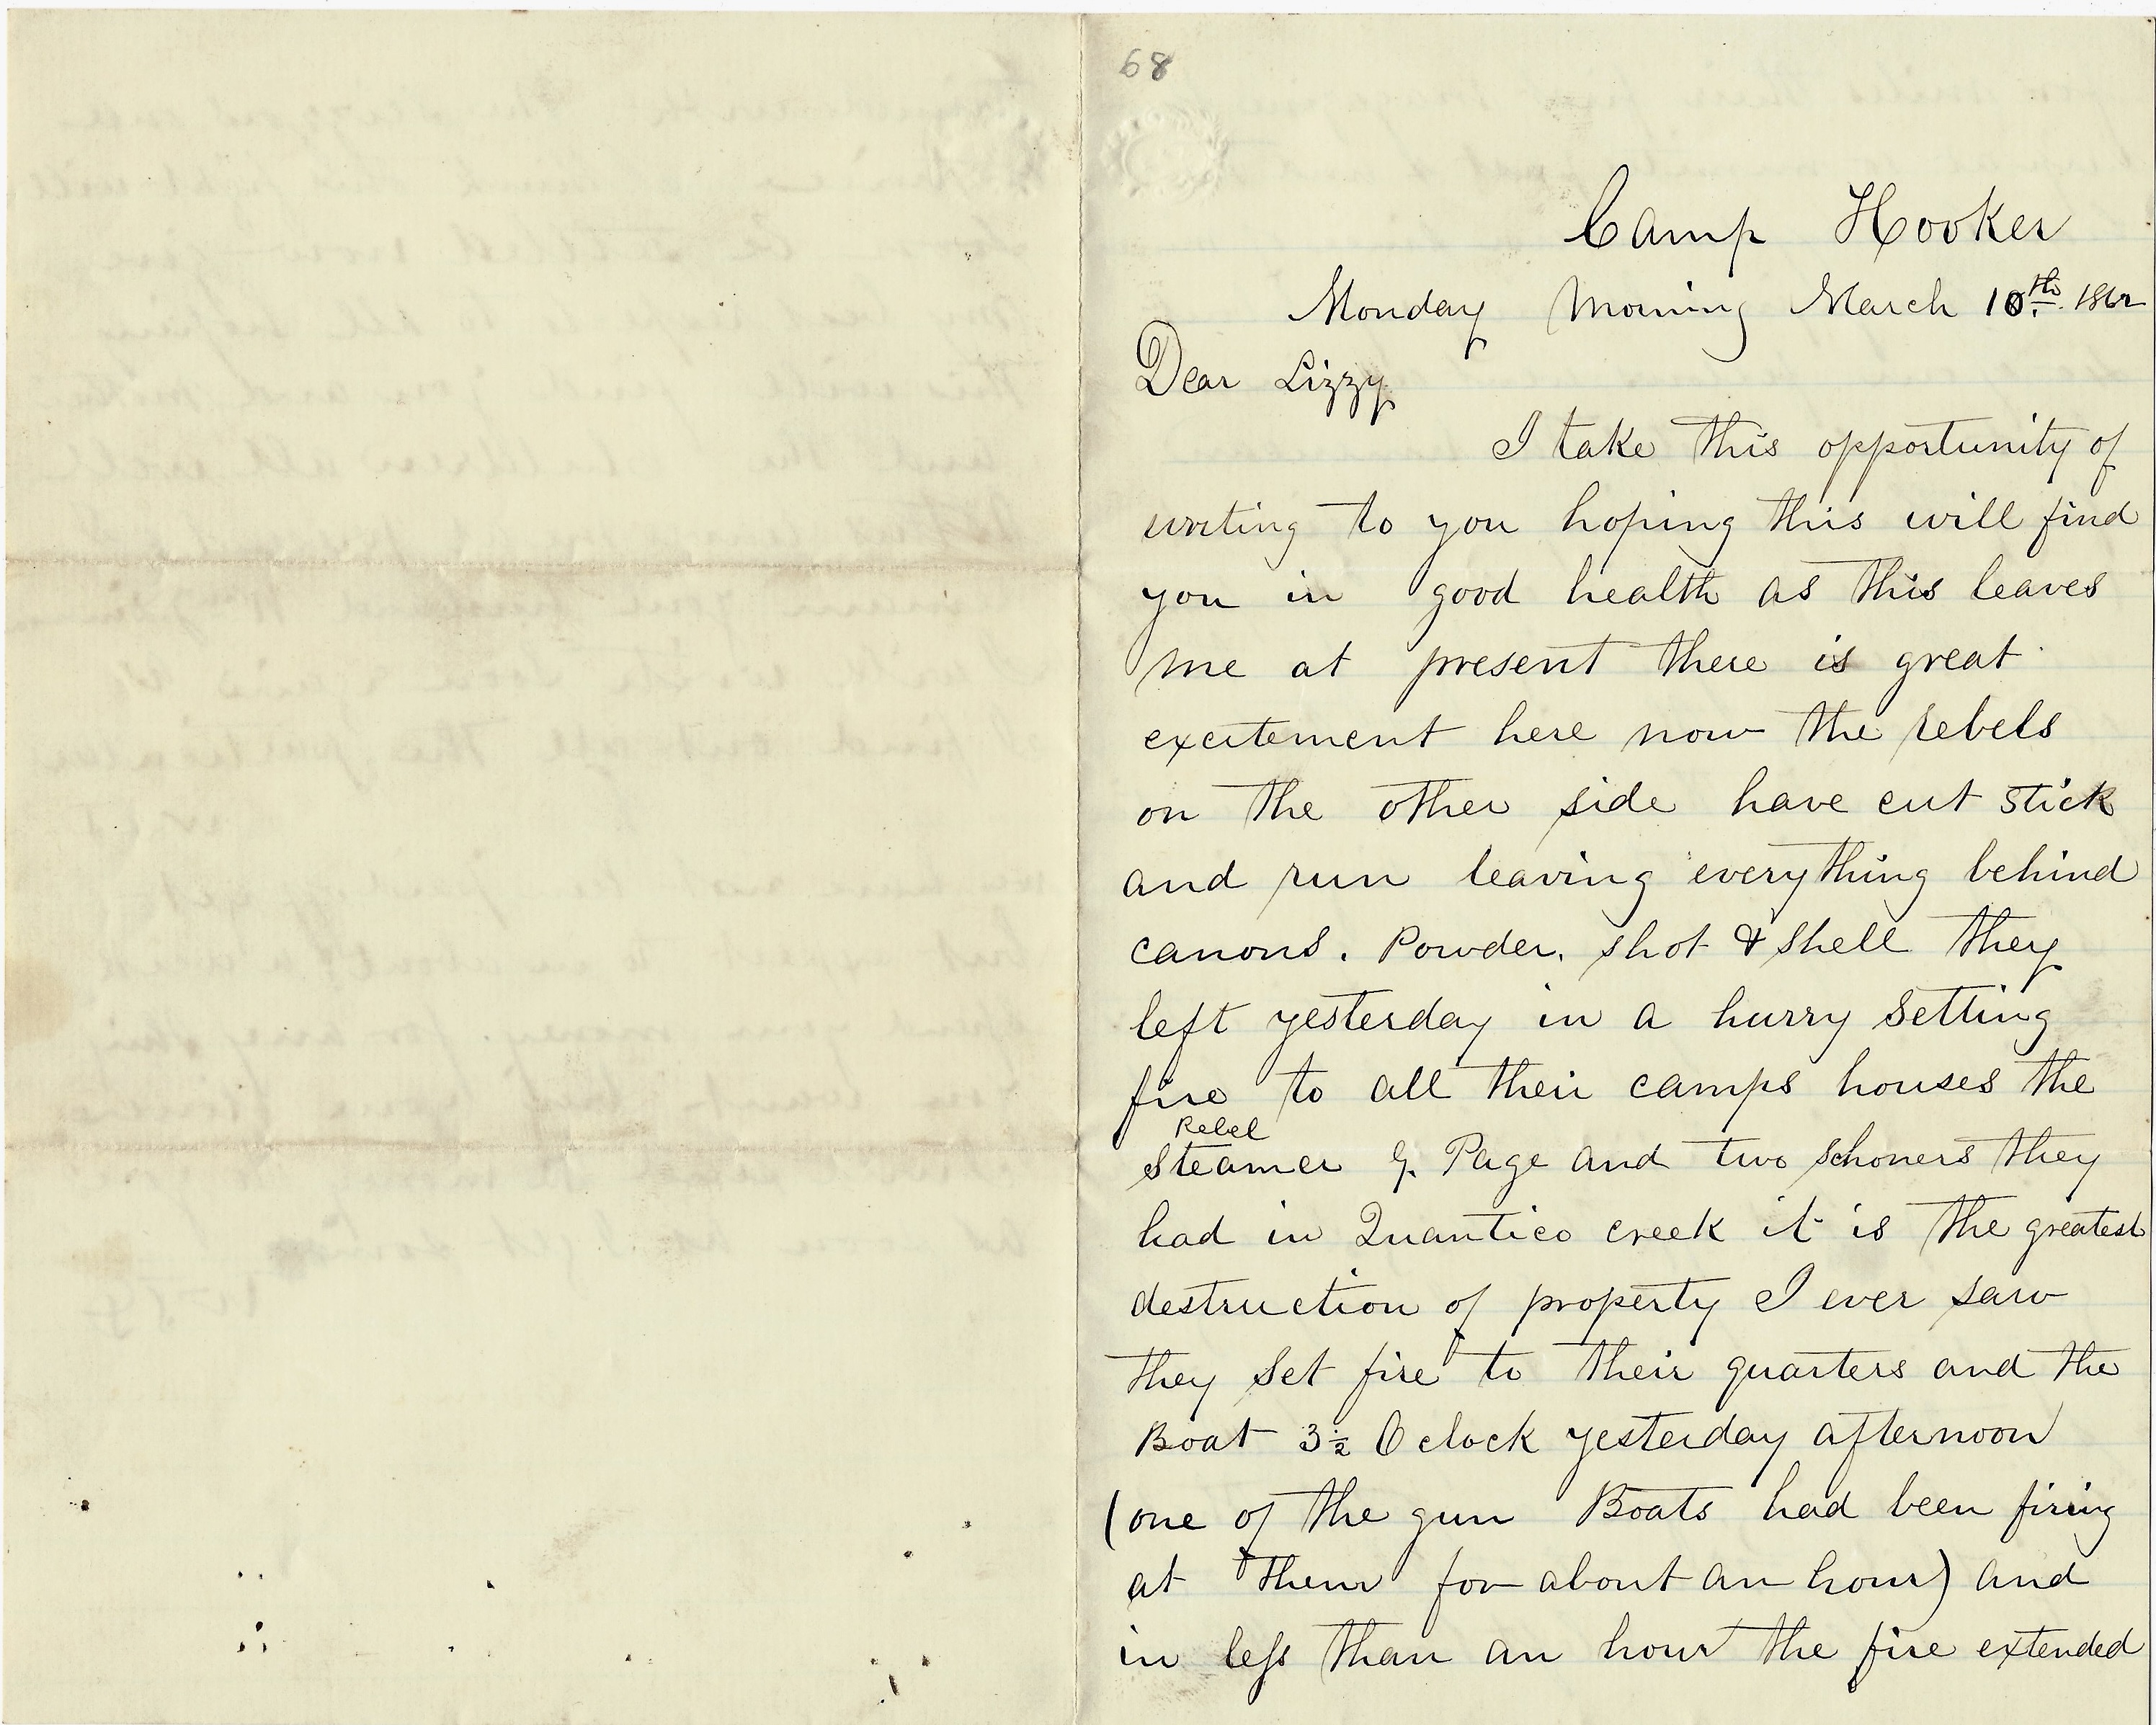 68
Camp Hooker
Monday Morning March 10th. 1862
Dear Lizzy
I take this opportunity of
writing to you hoping this will find
you in good health as this leaves
me at present there is great
excitement here now the rebels
on the other side have cut stick
and run leaving everything behind
canons. Powder. shot & shell they
left yesterday in a hurry setting
fire to all their camps houses the
Rebel
Steamer G. Page and two schoners they
had in Quantico creek it is the greatest
destruction of property I ever saw
they set fire to their quarters and the
Boat 3½ O clock yesterday afternoon
(one of the gun Boats had been firing
at them for about an hour) and
in less than an hour the fire extended